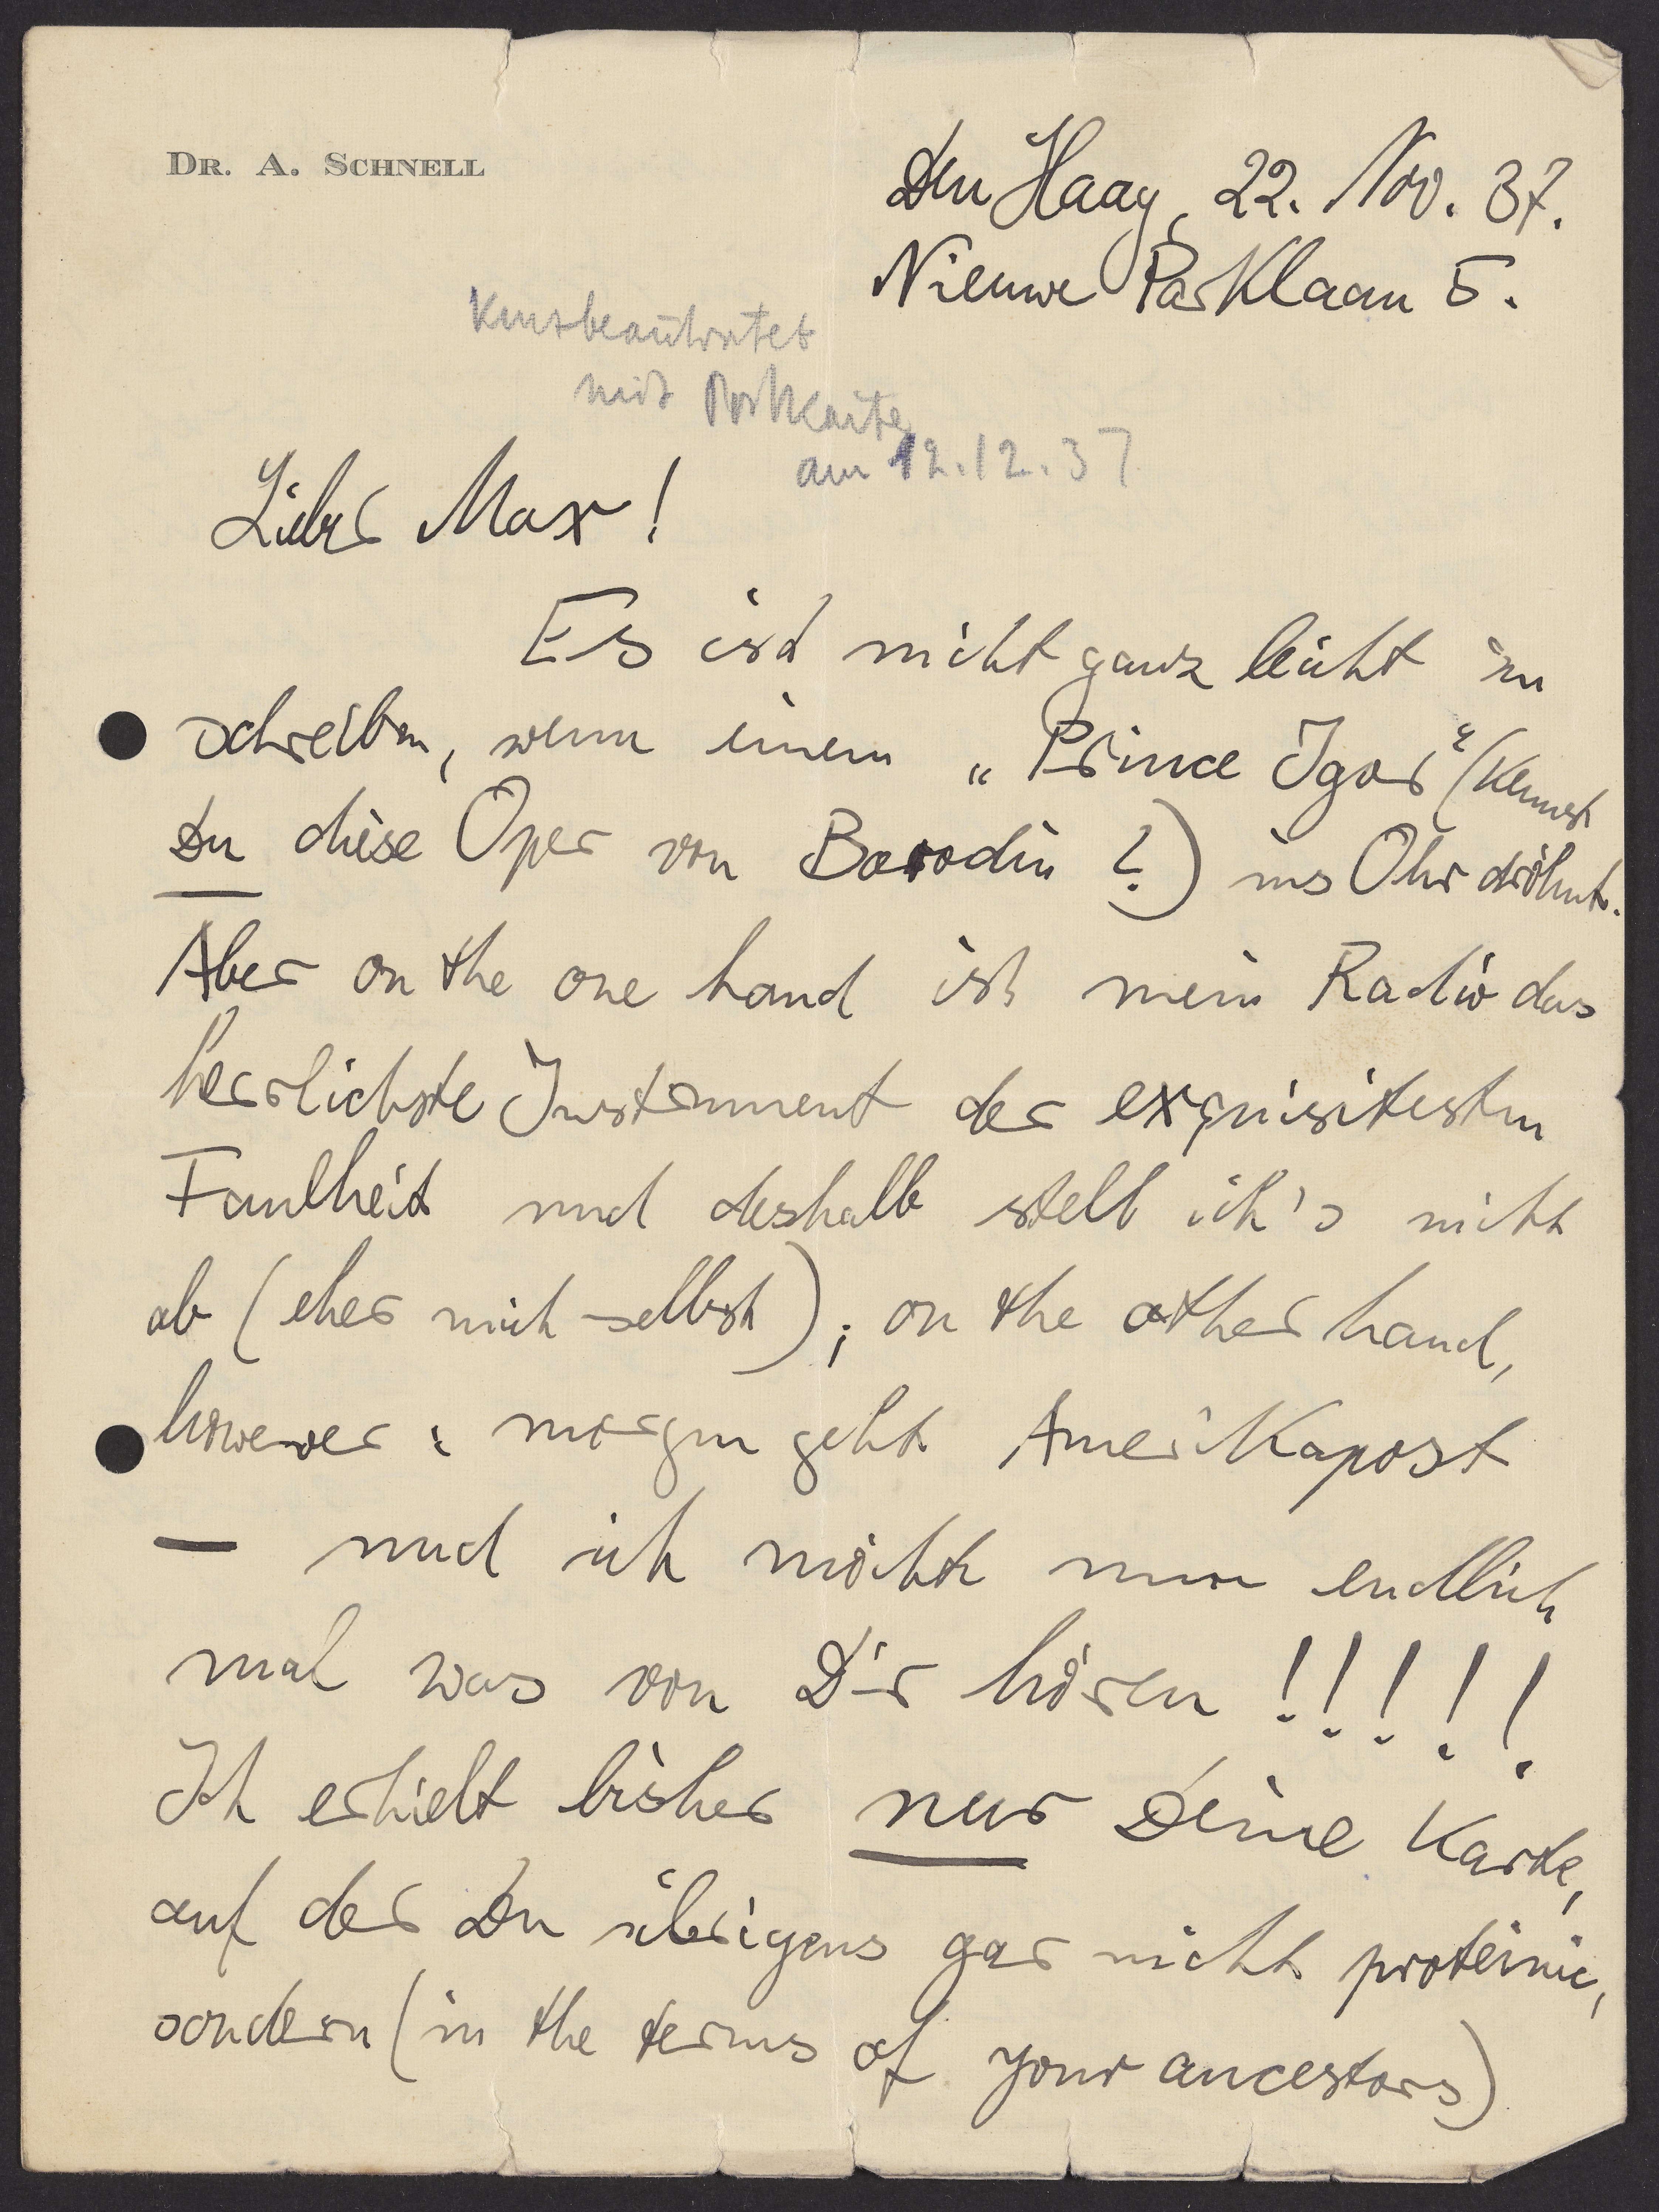 DR. A. SCHNELL
Den Haag, 22. Nov. 37.
Nieuwe Parklaan 5.
Kurz beantwortet
mit Postkarte
am 12.12.37
Lieber Max!
Es ist nicht ganz leicht zu
schreiben, wenn einem „Prince Igor“ (kennst
Du diese Oper von Borodin?) ins Ohr dröhnt.
Aber on the one hand ist mein Radio das
herrlichste Instrument der exquisitesten
Faulheit und deshalb stell ich's nicht
ab (eher mich selbst); on the other hand,
however: morgen geht Amerikapost
— und ich möchte nun endlich
mal was von Dir hören!!!!!
Ich erhielt bisher nur Deine Karte,
auf der Du übrigens gar nicht proteinic,
sondern (in the terms of your ancestors)